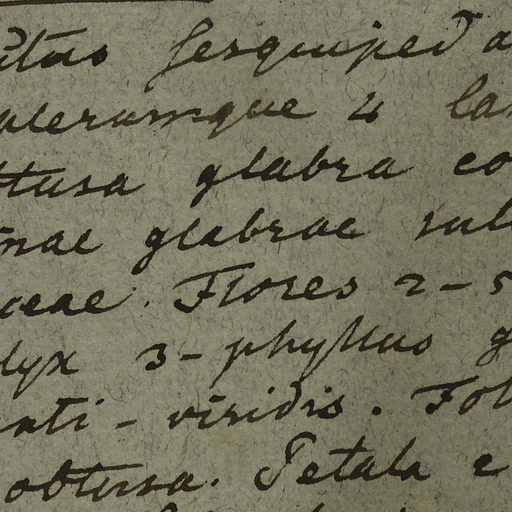 sesquiped a
plerumque 4 lan
obtusa glabra co
glabrae sul
ceae. Flores 2-5
lyx 3-phyllus g
nti-viridis. Fol
obtusa. Petala e